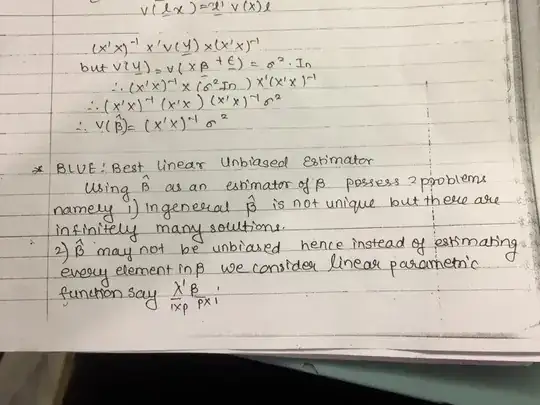 V(l'x) = l' V(x) l
(x'x)⁻¹ x' V(y) x(x'x)⁻¹
but V(y) = V(xβ + ε) = σ². In
∴ (x'x)⁻¹ x (σ² In) x'(x'x)⁻¹
∴ (x'x)⁻¹ (x'x) (x'x)⁻¹ σ²
∴ V(β̂) = (x'x)⁻¹ σ²
* BLUE: Best linear Unbiased Estimator
Using β̂ as an estimator of β possess 2 problems
namely 1) In general β̂ is not unique but there are
infinitely many solutions.
2) β̂ may not be unbiased hence instead of estimating
every element in β we consider linear parametric
function say λ' β
1xp px1